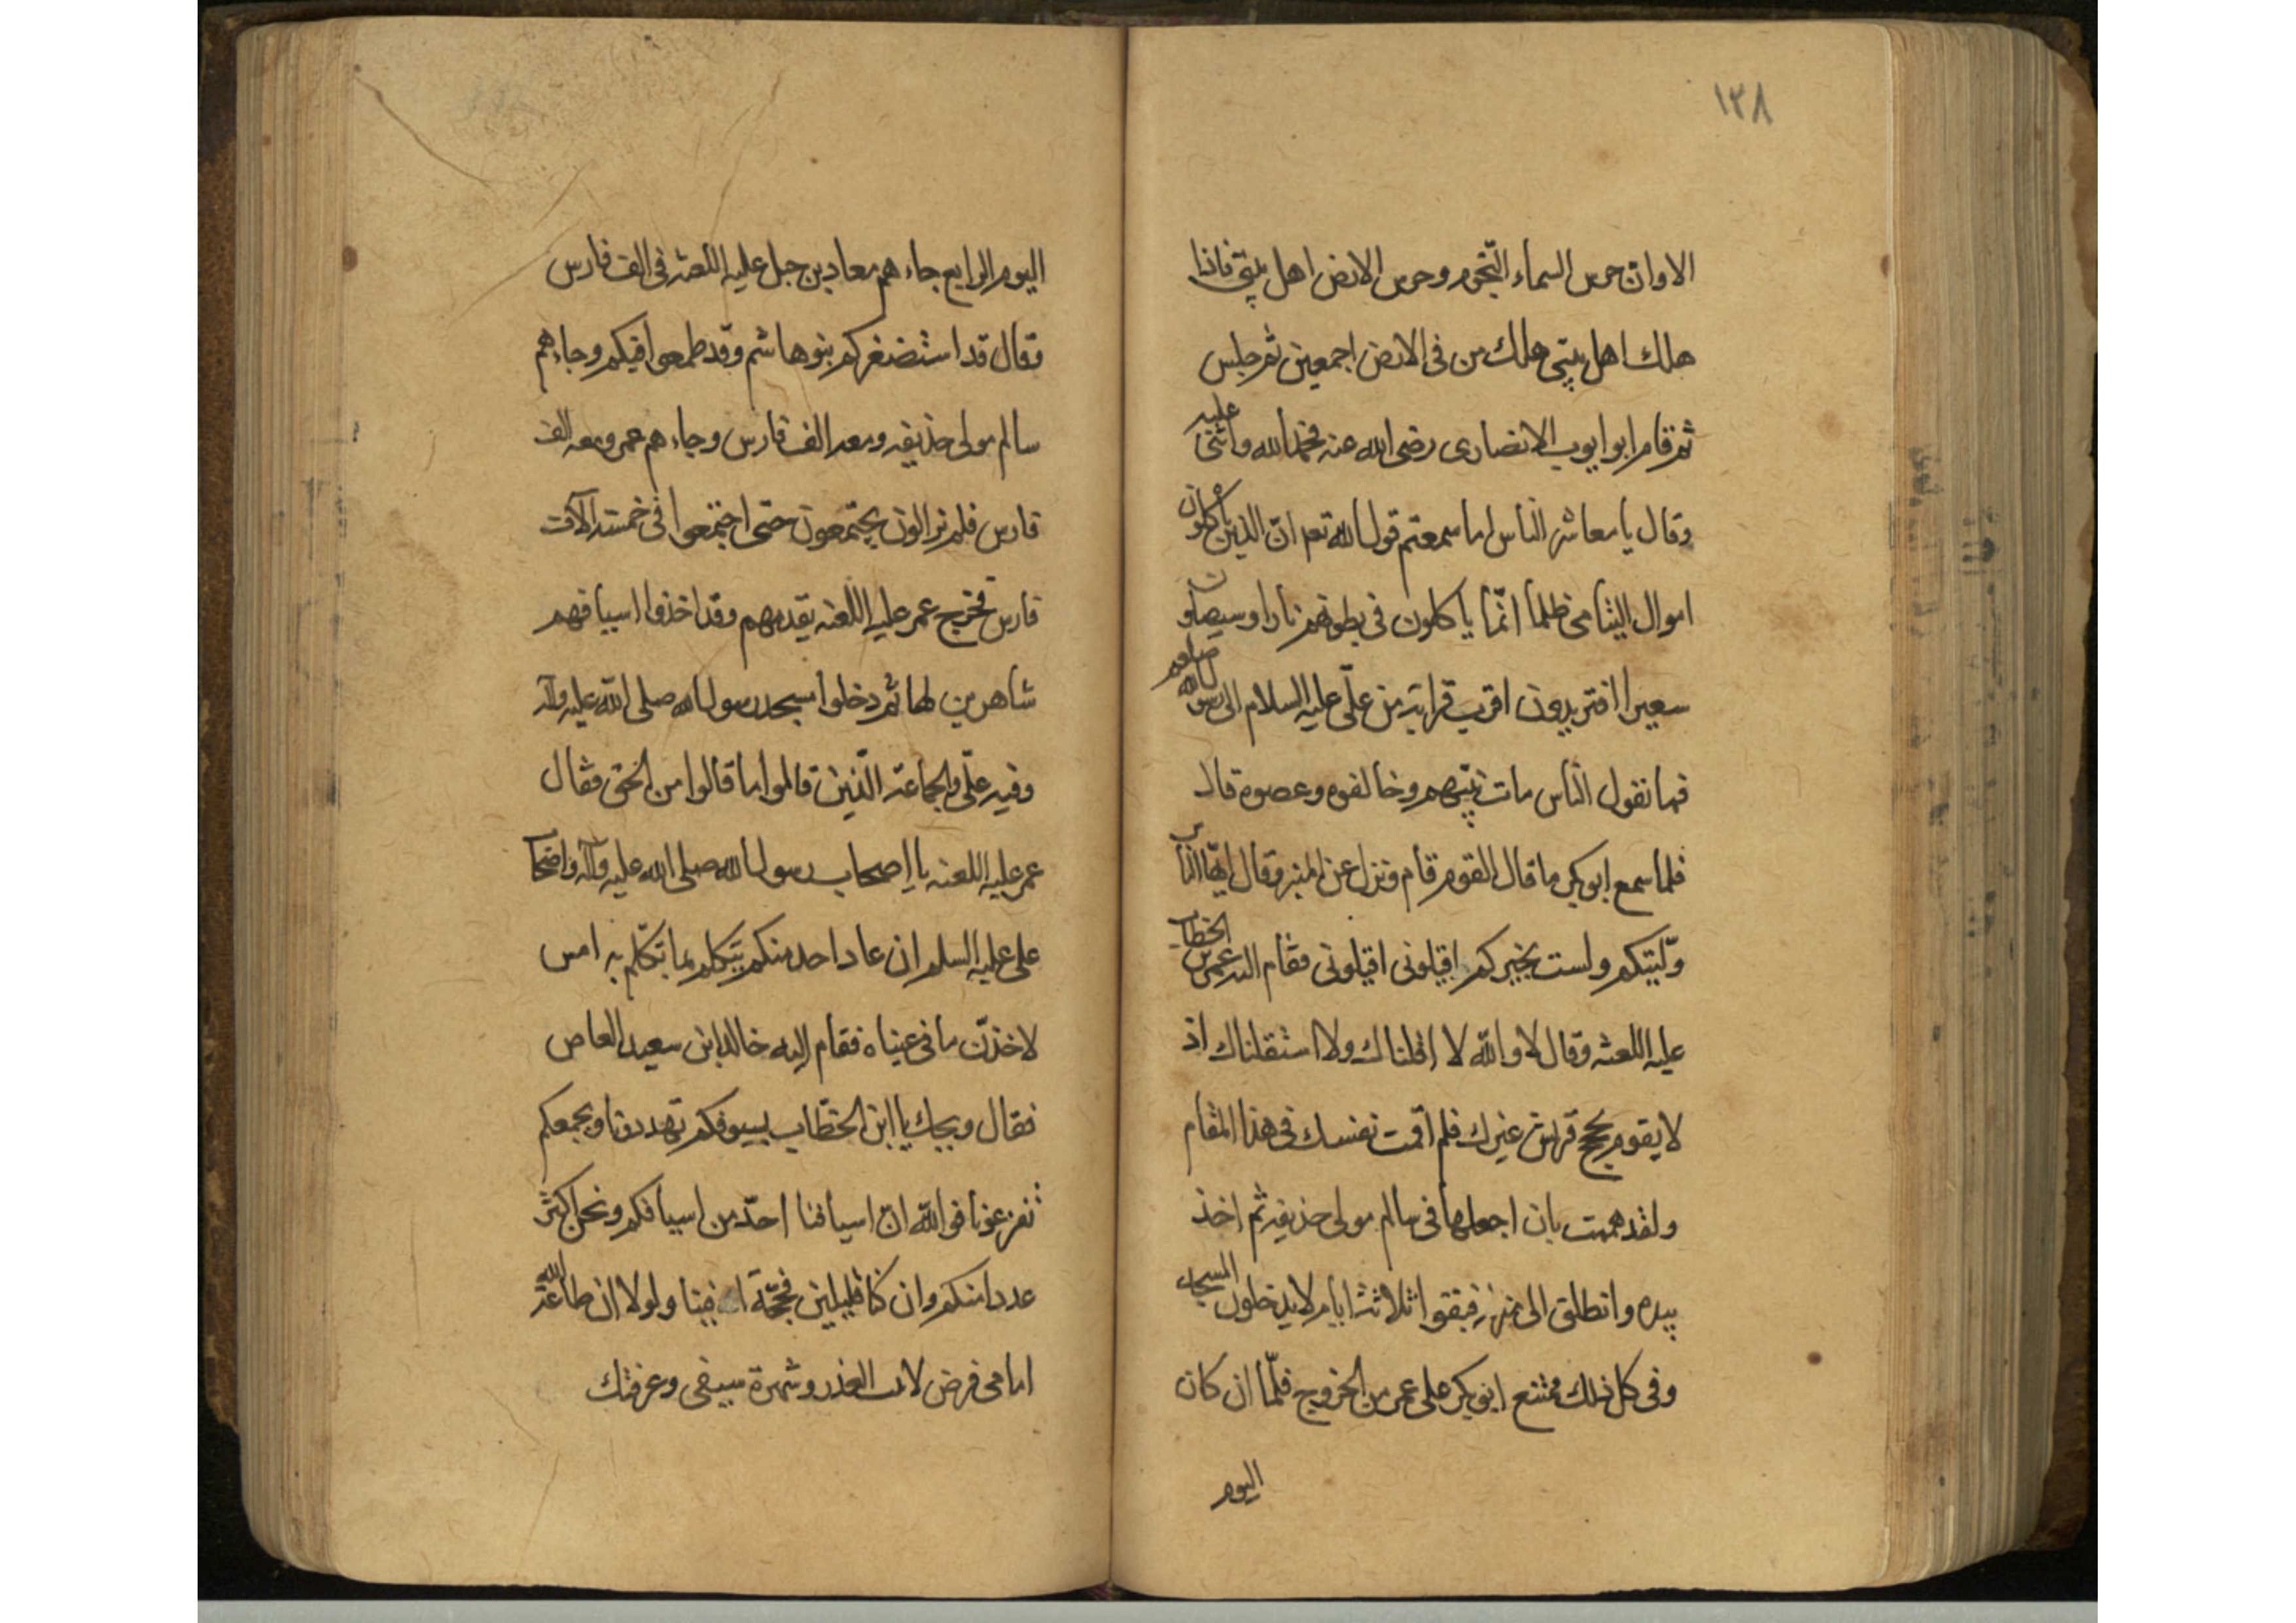 ١٣٨
الا وان حرس السماء النّجوم وحرس الارض اهل بيتى فاذا
هلك اهل بيتى هلك من فى الارض اجمعين ثم جلس
ثم قام ابو ايوب الانصارى رضى الله عنه فحمد الله واثنى عليه
وقال يا معاشر الناس اما سمعتم قول الله تعه انّ الذين ياكلون
اموال اليتامى ظلما انّما ياكلون فى بطونهم نارا وسيصلون
سعيرا افتريدون اقرب قرابة من علّى عليه السلام الى رسول الله صلعم
فما نقول الناس مات نبيّهم وخالفوه وعصوه قال
فلما سمع ابو بكر ما قال القوم قام ونزل عن المنبر وقال ايّها الناس
ولّيتكم ولست بخيركم اقيلونى اقيلونى فقام اليه عمر بن الخطاب
عليه اللعنة وقال لا والله لا اقلناك ولا استقلناك اذ
لا يقوم بحجج قريش غيرك فلم اقمت نفسك فى هذا المقام
ولقد هممت بان اجعلها فى سالم مولى حذيفه ثم اخذ
بيده وانطلق الى منزله فبقوا ثلاثة ايام لا يدخلون المسجد
وفى كل ذلك ممتنع ابو بكر على عمر من الخروج فلّما ان كان
اليوم
اليوم الرابع جاءهم معاد بن جبل عليه اللعنة فى الف فارس
فقال قد استضغركم بنو هاشم وقد طمعوا فيكم وجاءهم
سالم مولى حذيفه ومعه الف فارس وجاءهم عمر ومعه الف
فارس فلم يزالون يجتمعون حتى اجتمعوا فى خمسة الاف
فارس فخرج عمر عليه اللعنه يقدمهم وقد اخذوا اسيافهم
شاهرين لها ثم دخلوا مسجد رسول الله صلى الله عليه وآله
وفيه علّى والجماعة الّذين قالموا ما قالوا من الحق فقال
عمر عليه اللعنه يا اصحاب رسول الله صلى الله عليه وآله واصحاب
على عليه السلم ان عاد احد منكم يتكلم بما تكلّم به امس
لاخذنّ ما فى عيناه فقام اليه خالد ابن سعيد العاص
فقال ويحك يا ابن الخطّاب بسيوفكم تهددونا وبجمعكم
تفزعونا فو الله انّ اسيافنا احدّ من اسيافكم ونحن اكثر
عددا منكم وان كنا قليلين فحجّة الله فينا ولولا ان طاعة الله
امامى فرض لانت الغدر وشهرة سيفى وعرفتك